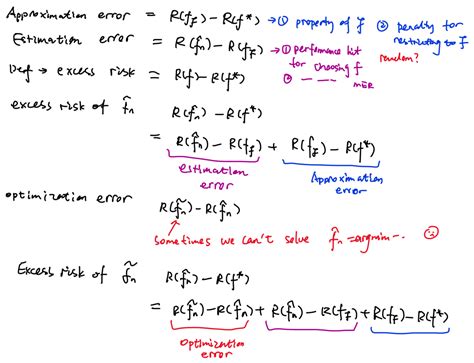 Approximation error = R(f_F) - R(f*) → ① property of F ② penalty for restricting to F
Estimation error = R(f̂n) - R(f_F) → ① performance hit for choosing f random?
② — — — in ER
Def → excess risk = R(f) - R(f*)
excess risk of f̂n R(f̂n) - R(f*)
= R(f̂n) - R(f_F) + R(f_F) - R(f*)
estimation error Approximation error
optimization error R(f̃n) - R(f̂n)
sometimes we can't solve f̂n = argmin --.
Excess risk of f̃n R(f̃n) - R(f*)
= R(f̃n) - R(f̂n) + R(f̂n) - R(f_F) + R(f_F) - R(f*)
optimization error